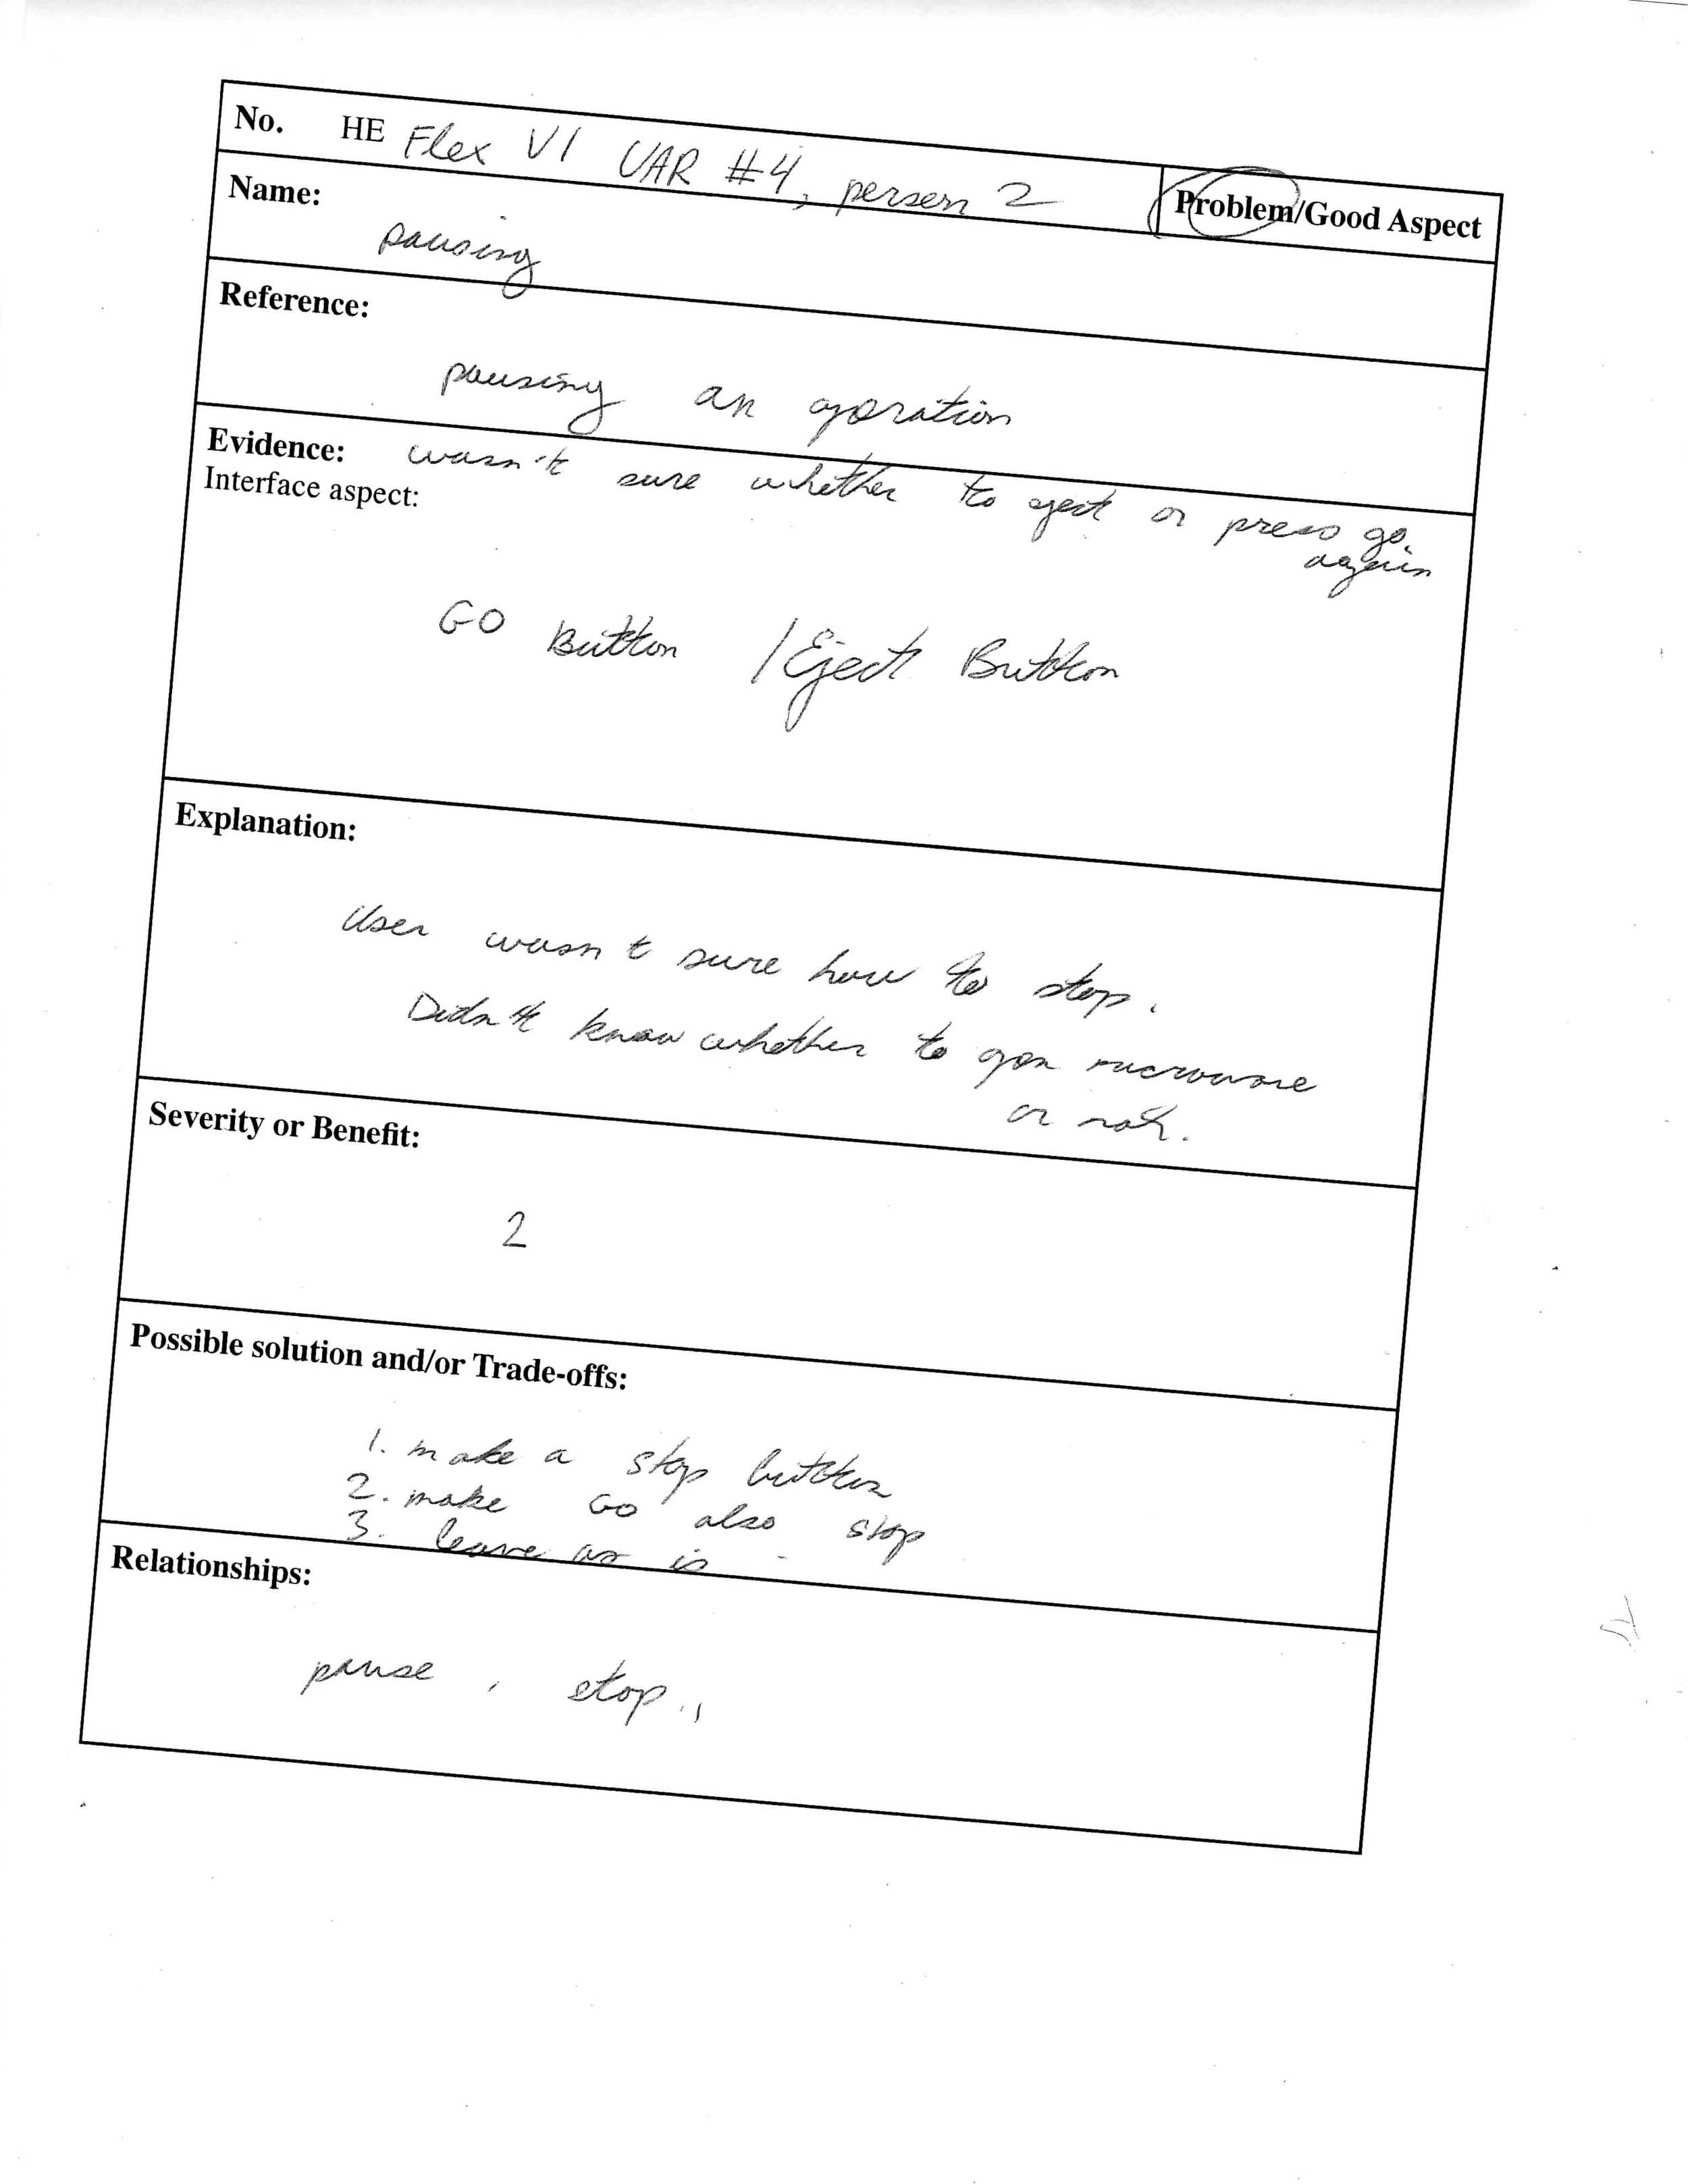 No. HE Flex V1 UAR #4, person 2 Problem/Good Aspect
Name:
pausing
Reference:
pausing an operation
Evidence: wasn't sure whether to eject or press go.
again
Interface aspect:
GO Button / Eject Button
Explanation:
User wasn't sure how to stop.
Didn't know whether to open microwave
or not.
Severity or Benefit:
2
Possible solution and/or Trade-offs:
1. make a stop button
2. make GO also stop
3. leave as is
Relationships:
pause, stop,